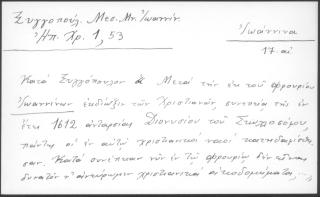 Ξυγγοπούλ. Μεσ. Μν. Ἰωαννίν.
Ἠπ. Χρ. 1, 53
Ἰωάννινα
17. αἰ
Κατὰ Ξυγγόπουλον Μετὰ τὴν ἐκ τοῦ φρουρίου
Ἰωαννίνων ἐκδίωξιν τῶν Χριστιανῶν, συνεπείᾳ τῆς ἐν
ἔτει 1612 ἀνταρσίας Διονυσίου τοῦ Σκυλοσόφου,
πάντες οἱ ἐν αὐτῷ χριστιανικοὶ ναοὶ κατηδαφίσθη
σαν. Κατὰ συνέπειαν νῦν ἐν τῷ φρουρίῳ δὲν εἶναι
δυνατὸν ν' ἀνεύρωμεν χριστιανικὰ οἰκοδομήματα,...